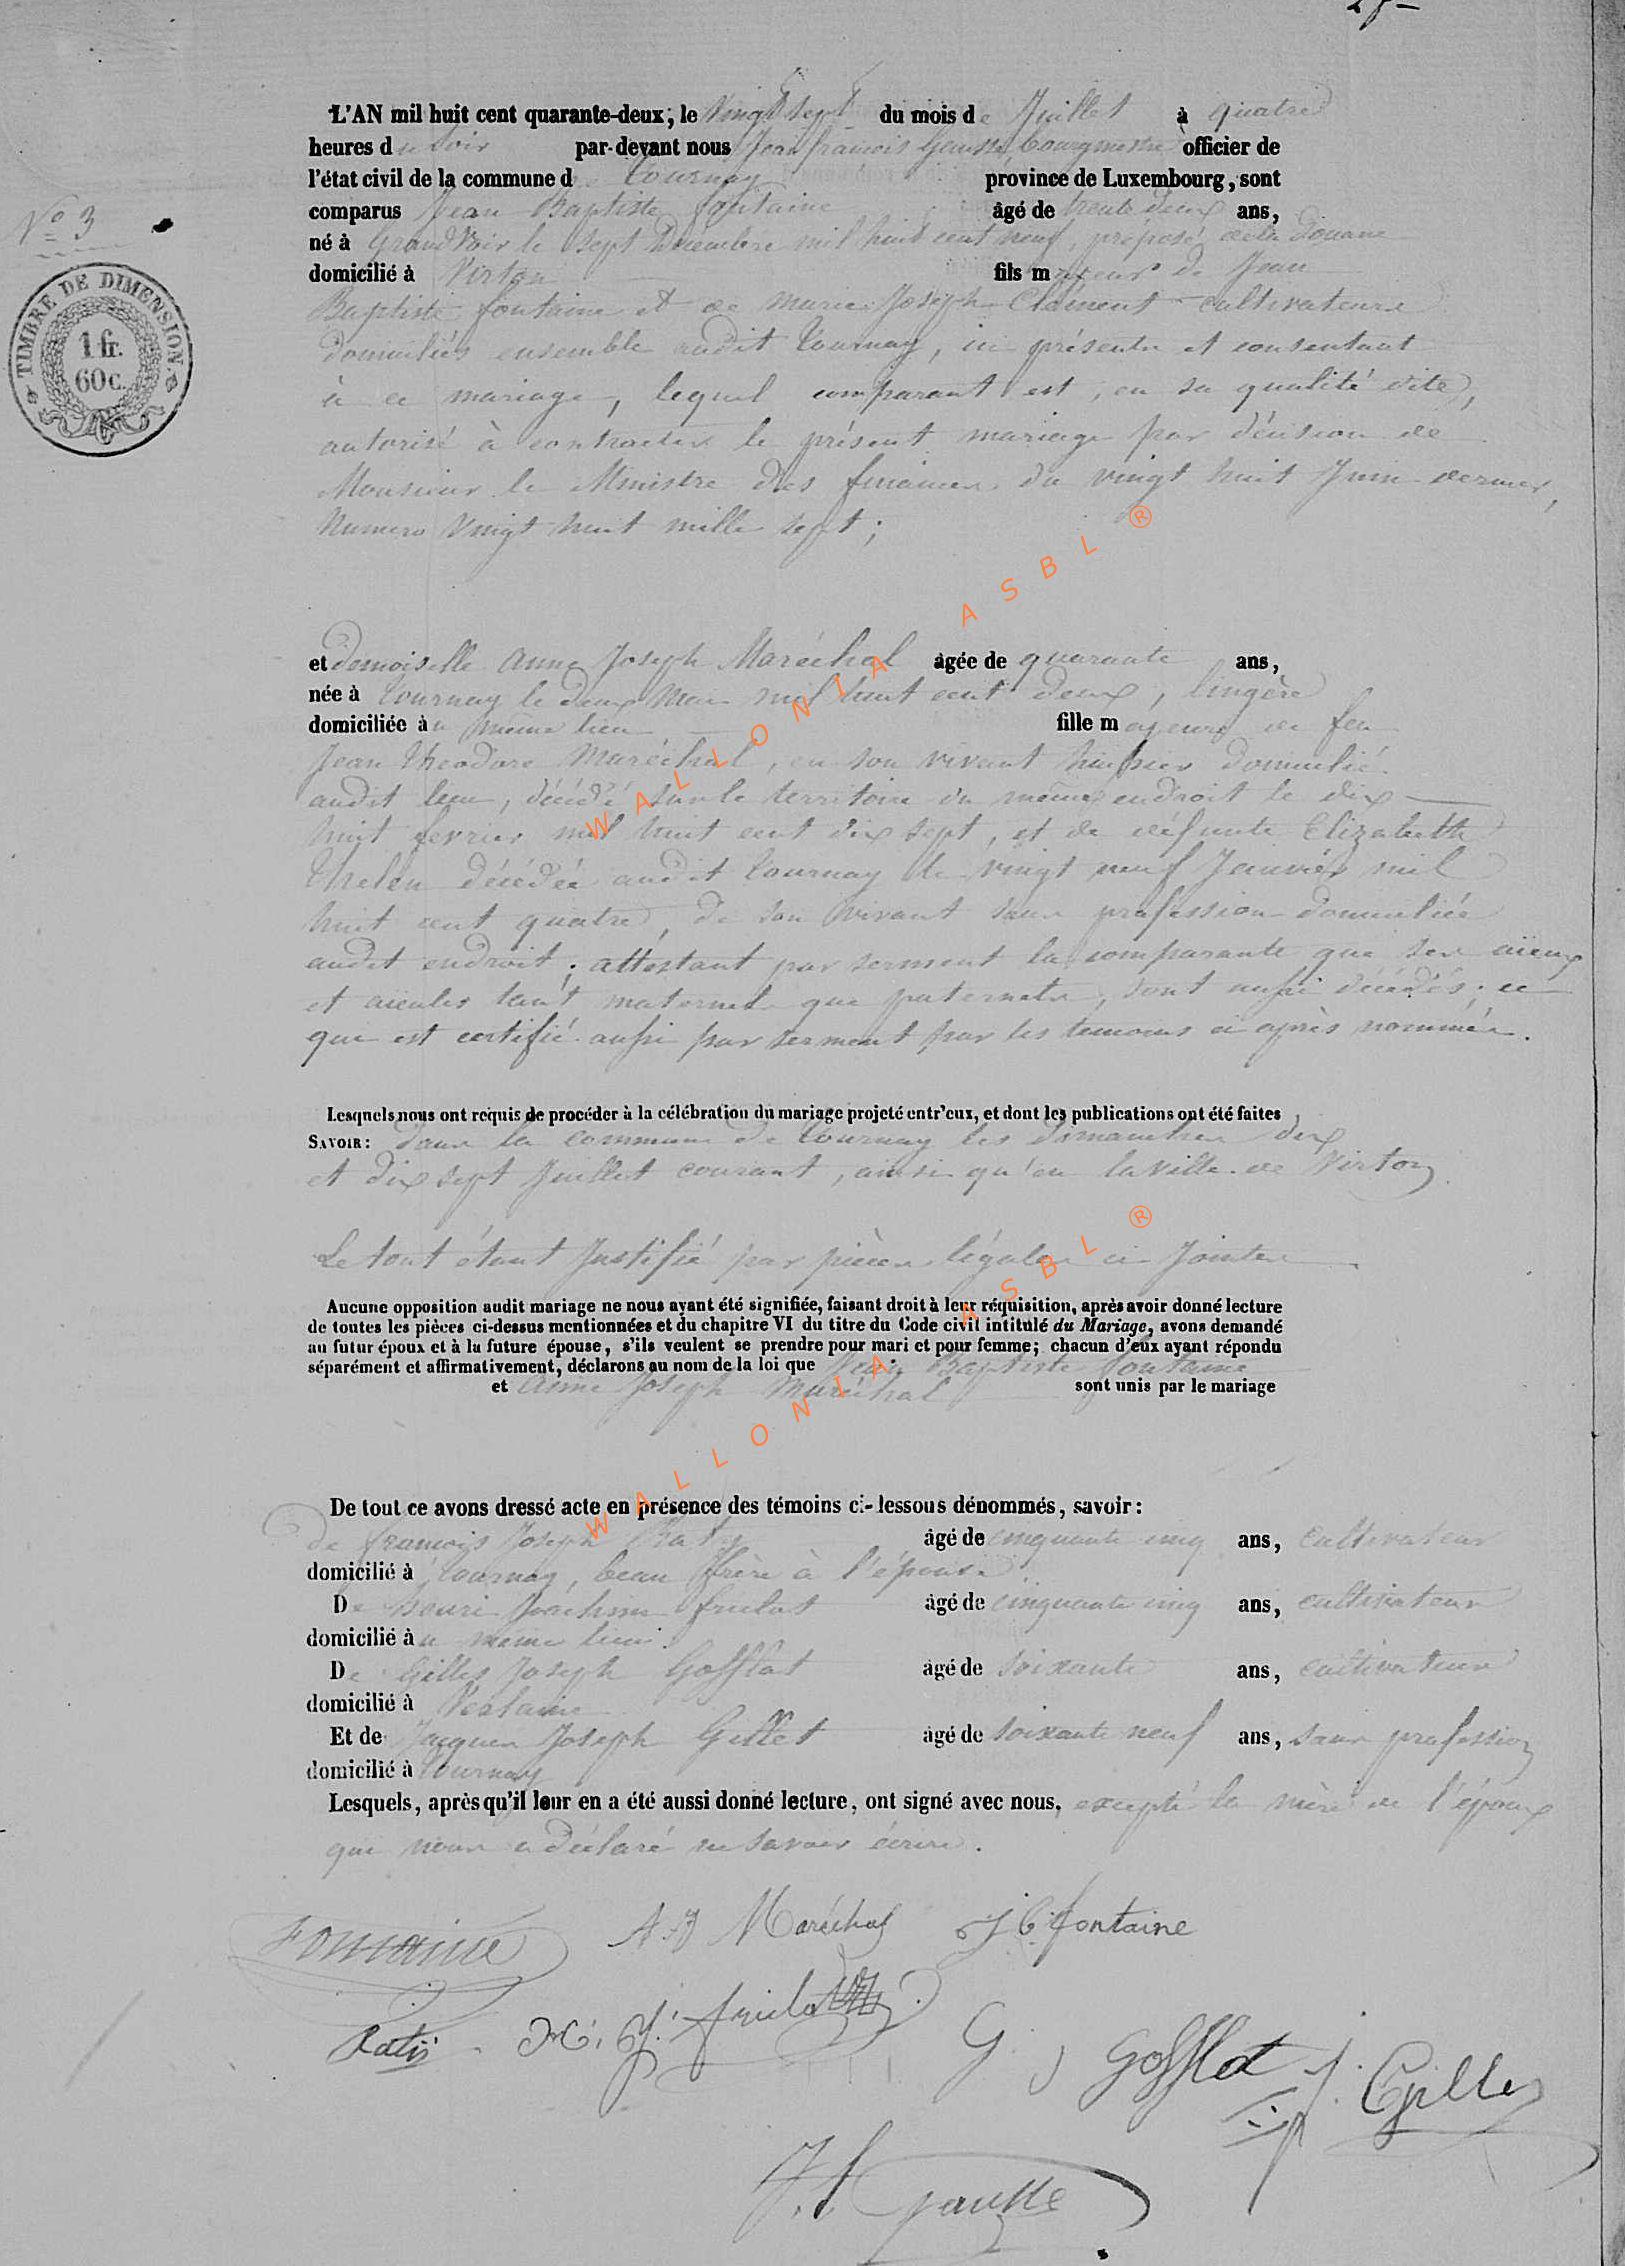 N° 3
TIMBRE DE DIMENSION.
1 fr.
60 c.
L'AN mil huit cent quarante-deux, le Vingt sept du mois de Juillet à quatre
heures du soir par-devant nous Jean françois Gausse, bourgmestre officier de
l'état civil de la commune de Tournay province de Luxembourg, sont
comparus Jean Baptiste fontaine âgé de trente deux ans,
né à Grandvoir le sept Décembre mil huit cent neuf, préposé de la Douane
domicilié à Virton fils majeur de Jean
Baptiste fontaine et de marie Joseph Clément cultivateurs
domiciliés ensemble audit Tournay, ici présents et consentant
à ce mariage, lequel comparant est, en sa qualité dite,
autorisé à contracter le présent mariage par décision de
Monsieur le Ministre des finances du vingt huit Juin dernier,
Numero Vingt huit mille sept;
et demoiselle Anne Joseph Maréchal âgée de quarante ans,
née à Tournay le deux Mai mil huit cent deux, lingère
domiciliée au même lieu fille majeure de feu
Jean Théodore Maréchal, en son vivant huissier domicilié
audit lieu, décédé sur le territoire du même endroit le dix
huit fevrier mil huit cent dix sept, et de défunte Elizabeth
Thelen décédée audit Tournay le vingt neuf Janvier mil
huit cent quatre, de son vivant sans profession domiciliée
audit endroit; attestant par serment la comparante que ses aïeux
et aïeules tant maternels que paternels, sont aussi décédés; ce
qui est certifié aussi par serment par les témoins ci après nommés.
Lesquels nous ont requis de procéder à la célébration du mariage projeté entr'eux, et dont les publications ont été faites
SAVOIR: dans la commune de Tournay les dimanches dix
et dix sept Juillet courant, ainsi qu'en la ville de Virton
Le tout étant Justifié par pièces légales ci Jointes
Aucune opposition audit mariage ne nous ayant été signifiée, faisant droit à leur réquisition, après avoir donné lecture
de toutes les pièces ci-dessus mentionnées et du chapitre VI du titre du Code civil intitulé du Mariage, avons demandé
au futur époux et à la future épouse, s'ils veulent se prendre pour mari et pour femme; chacun d'eux ayant répondu
séparément et affirmativement, déclarons au nom de la loi que Jean Baptiste fontaine
et Anne Joseph Maréchal sont unis par le mariage
De tout ce avons dressé acte en présence des témoins ci-dessous dénommés, savoir:
De françois Joseph Raty âgé de cinquante cinq ans, cultivateur
domicilié à Tournay, beau frère à l'épouse
De Henri Joachim frulot âgé de cinquante cinq ans, cultivateur
domicilié au même lieu.
De Gilles Joseph Gofflot âgé de soixante ans, cultivateur
domicilié à Verlaine
Et de Jacques Joseph Gillet âgé de soixante neuf ans, sans profession
domicilié à Tournay
Lesquels, après qu'il leur en a été aussi donné lecture, ont signé avec nous, excepté la mère de l'époux
qui nous a déclaré ne savoir écrire.
Fontaine A. J Maréchal J b. fontaine
Ratij H. J. frulot G J Gofflot J. J. Gillet
J. f. Gausse
WALLONIA ASBL ®
WALLONIA ASBL ®